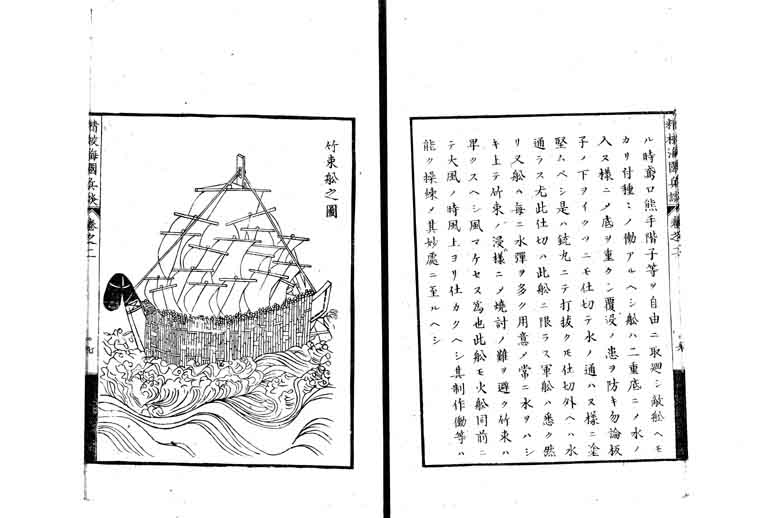 ル時鳶口熊手階子等ヲ自由ニ取廻シ敵舩ヘモ
カリ付種ミノ働アルヘシ舩ハ二重底ニメ水ノ
入ヌ様ニメ底ヲ重クシ覆没ノ患ヲ防キ勿論板
子ノ下ヲイクツニモ仕切テ水ノ通ハヌ様ニ塗
堅ムベシ是ハ銃丸ニテ打拔クモ仕切外ヘハ水
通ラス尤此仕切ハ此舩ニ限ラス軍舩ハ悉ク然
リ又舩ハ毎ニ水彈ヲ多ク用意メ常ニ水ヲハシ
キ上テ竹束ノ浸様ニメ焼討ノ難ヲ避ク竹束ハ
早クスヘシ風マケセヌ為也此舩モ火舩同前ニ
テ大風ノ時風上ヨリ仕カクヘシ其制作働等ハ
能ク操練メ其妙處ニ至ルヘシ
竹束舩之圖
精校海國兵談
卷之二